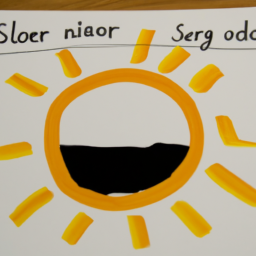 Sloer niaor Serg odo